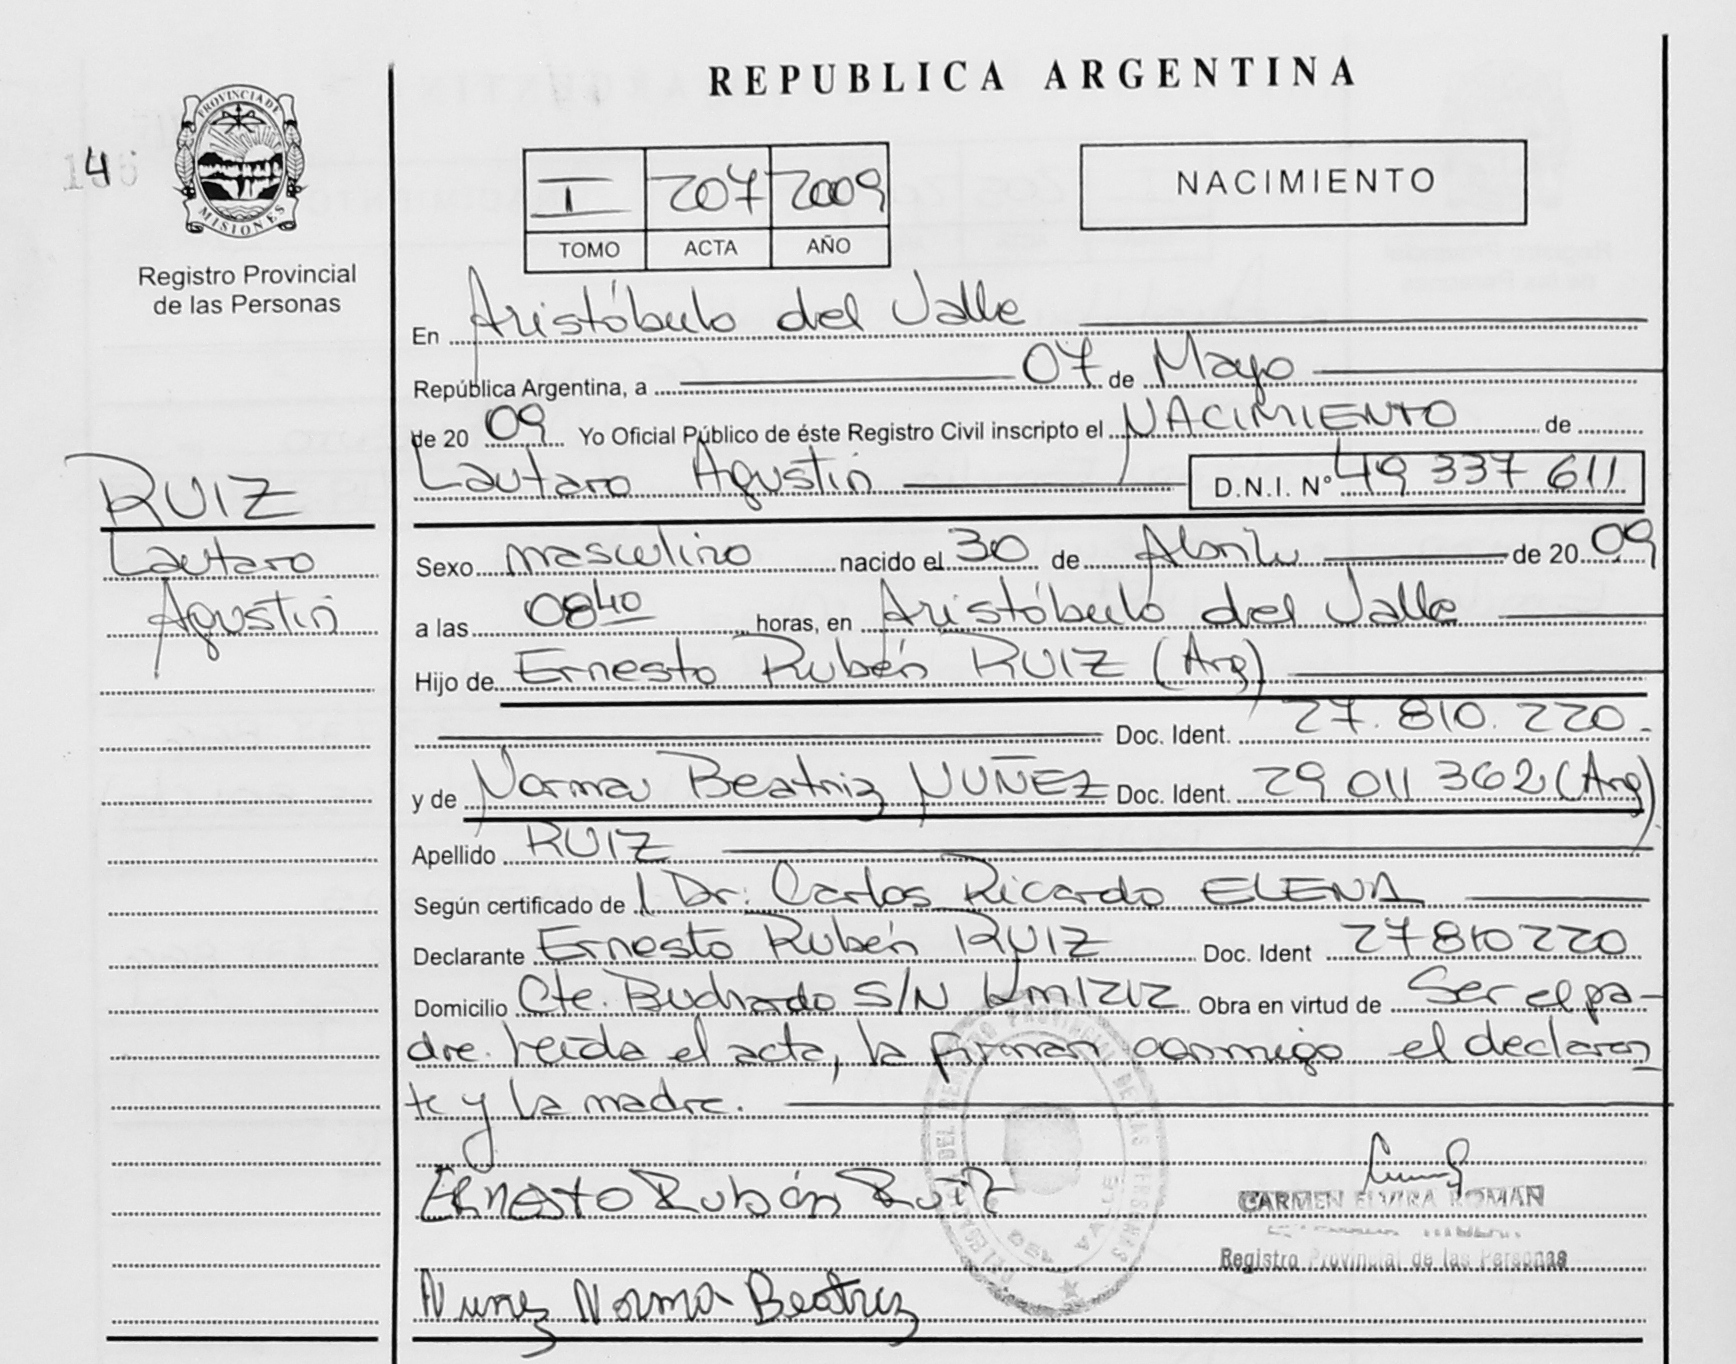 REPUBLICA ARGENTINA
PROVINCIA DE
MISIONES
Registro Provincial
de las Personas
I 207 2009
TOMO ACTA AÑO
NACIMIENTO
En Aristóbulo del Valle
República Argentina, a 07 de Mayo
de 20 09 Yo Oficial Público de éste Registro Civil inscripto el NACIMIENTO de
Lautaro Agustín D.N.I. Nº 49 337 611
RUIZ
Lautaro
Agustín
Sexo masculino nacido el 30 de Abril de 20 09
a las 08 40 horas, en Aristóbulo del Valle
Hijo de Ernesto Rubén RUIZ (Arg)
Doc. Ident. 27.810.220.
y de Norma Beatriz NUÑEZ Doc. Ident. 29 011 362 (Arg)
Apellido RUIZ
Según certificado de l Dr: Carlos Ricardo ELENA
Declarante Ernesto Rubén RUIZ Doc. Ident 27810220
Domicilio Cte. S/N Km 1212 Obra en virtud de Ser el pa-
dre. Leída el acta, la firman conmigo el declaran
te y la madre.
Ernesto Rubén Ruiz
CARMEN ELVIRA ROMAN
Registro Provincial de las Personas
Nuñez Norma Beatriz